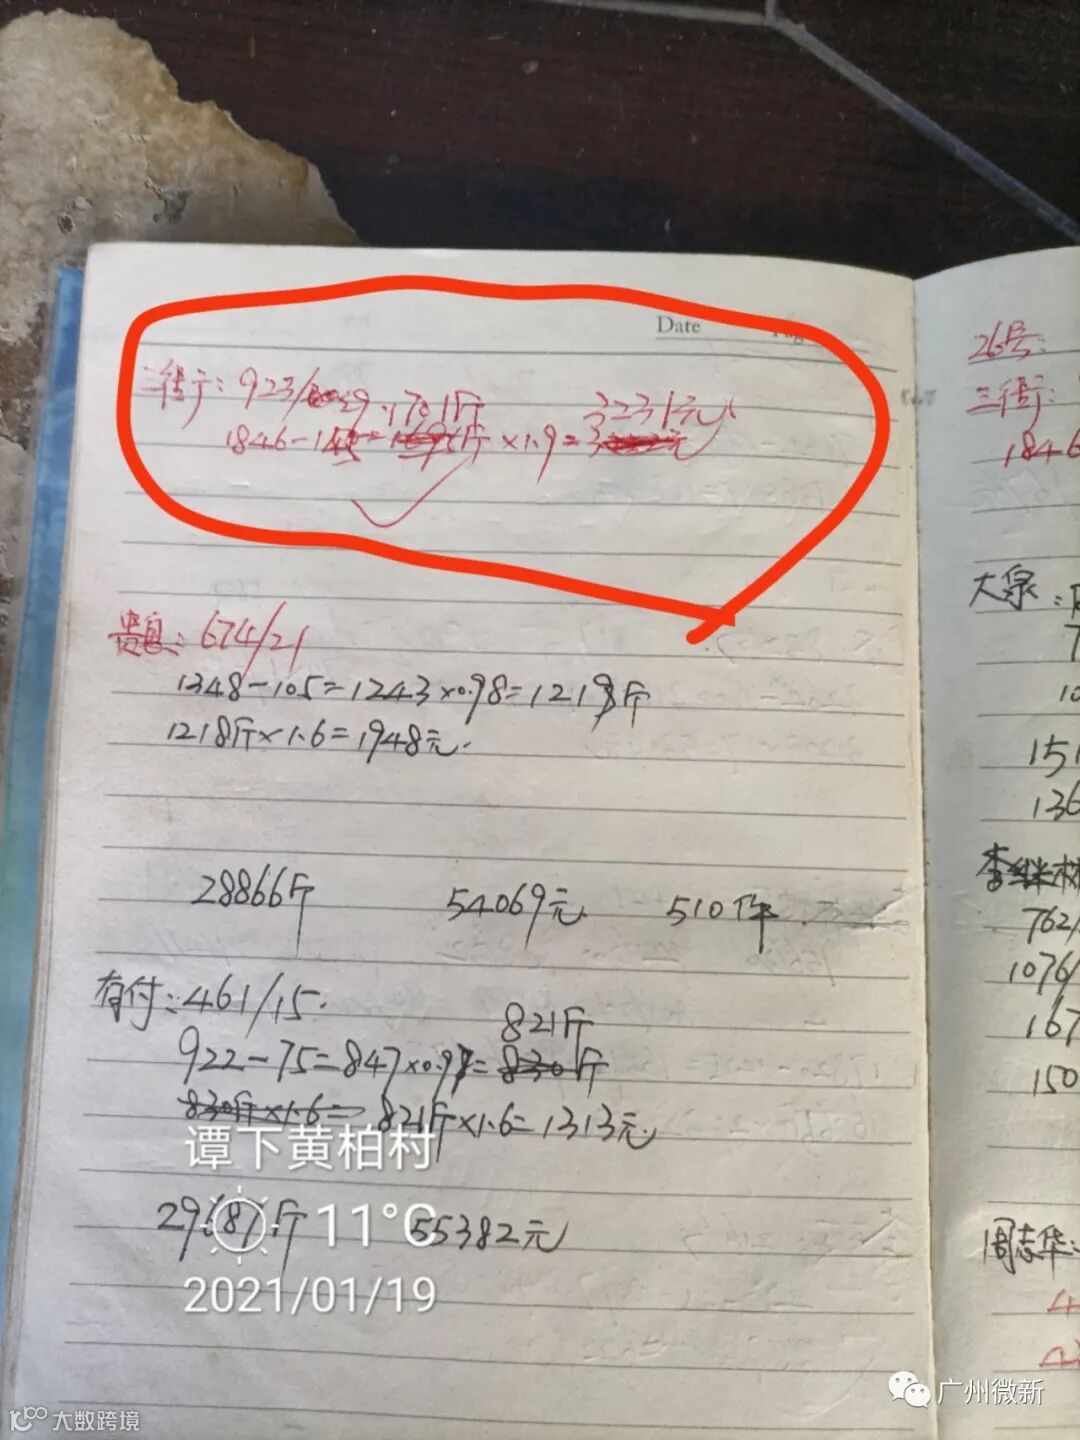 Date
三街子：923/29
1701斤 3231元
1846-145= ×1.9=
贵息：674/21
1348-105=1243×0.98=1218斤
1218斤×1.6=1948元.
28866斤 54069元 510件
有付：461/15.
821斤
922-75=847×0.97=830斤
830斤×1.6= 821斤×1.6=1313元
谭下黄柏村
29687斤 55382元
11°C
2021/01/19
26号：
三街子：
1846
大泉：
151
136
李继林
762/
1076/
167
150
周志华：
广州微新
大数跨境